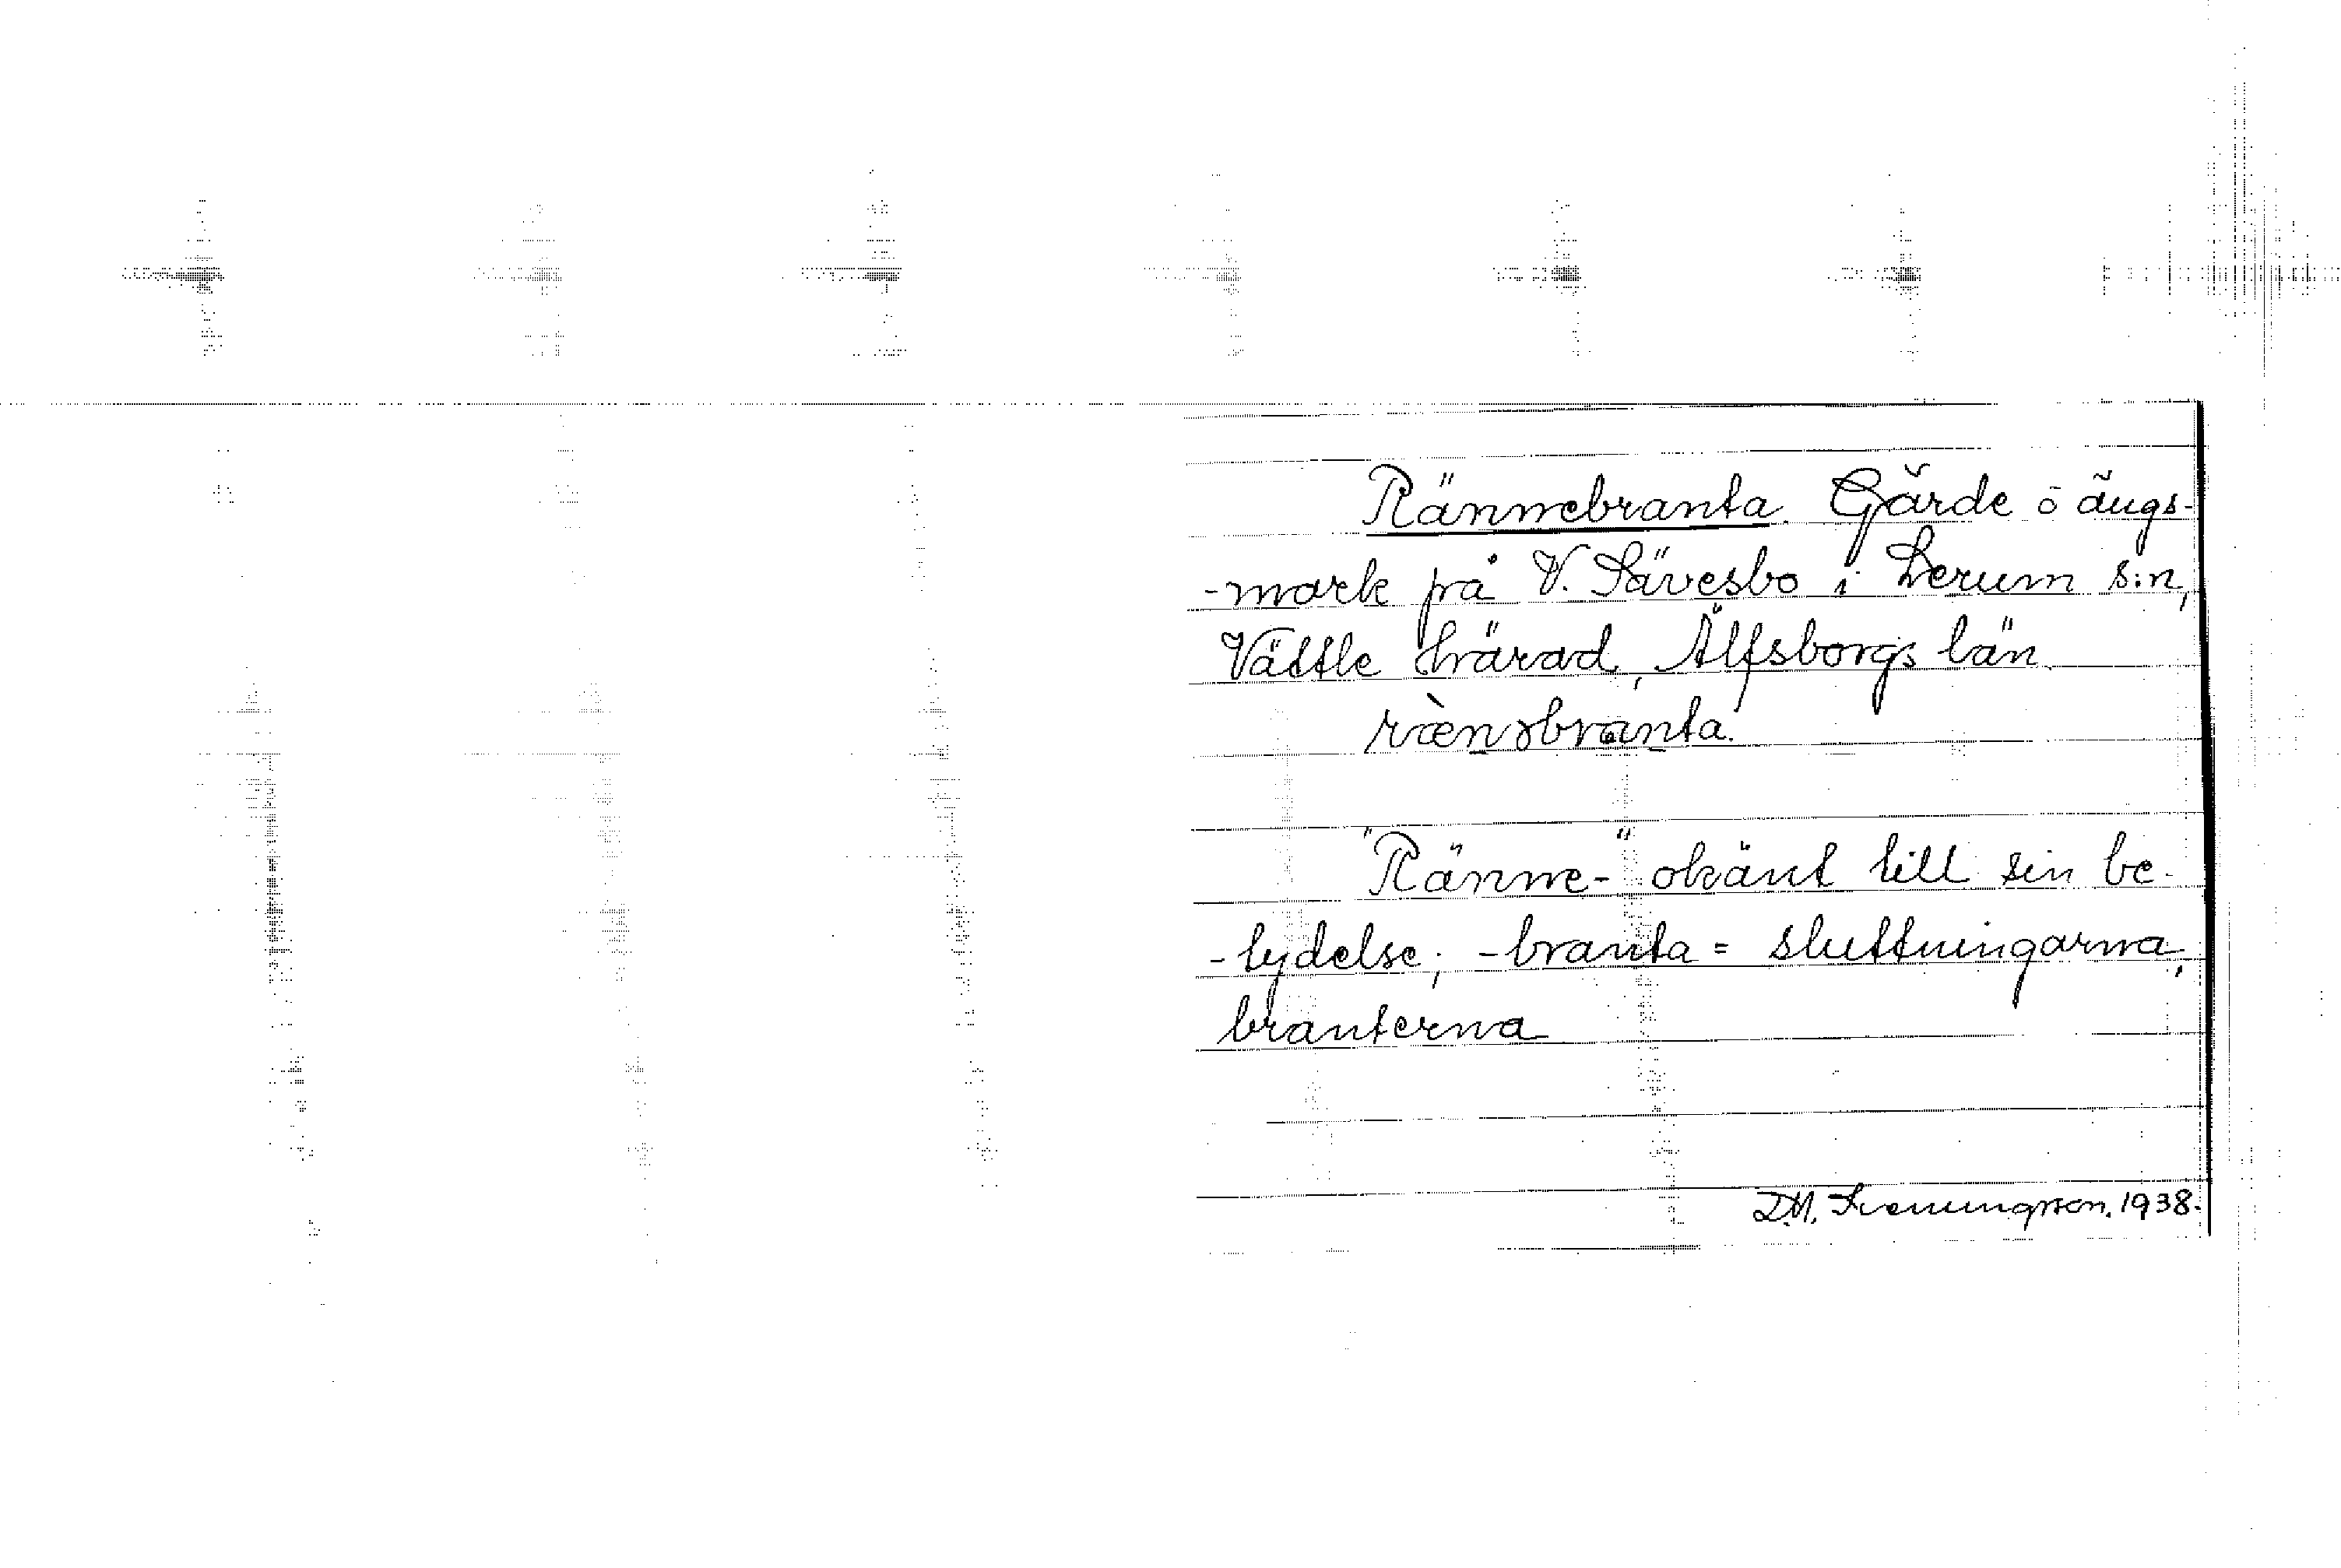 Rännebranta. Gärde ō ängs-
-mark på V. Sävesbo i Lerum s:n,
Vättle härad, Älfsborgs län.
rænɤbranta.
"Ränne-" okänt till sin be-
-tydelse; -branta = sluttningarna,
branterna
D.M. Svenningsson. 1938.